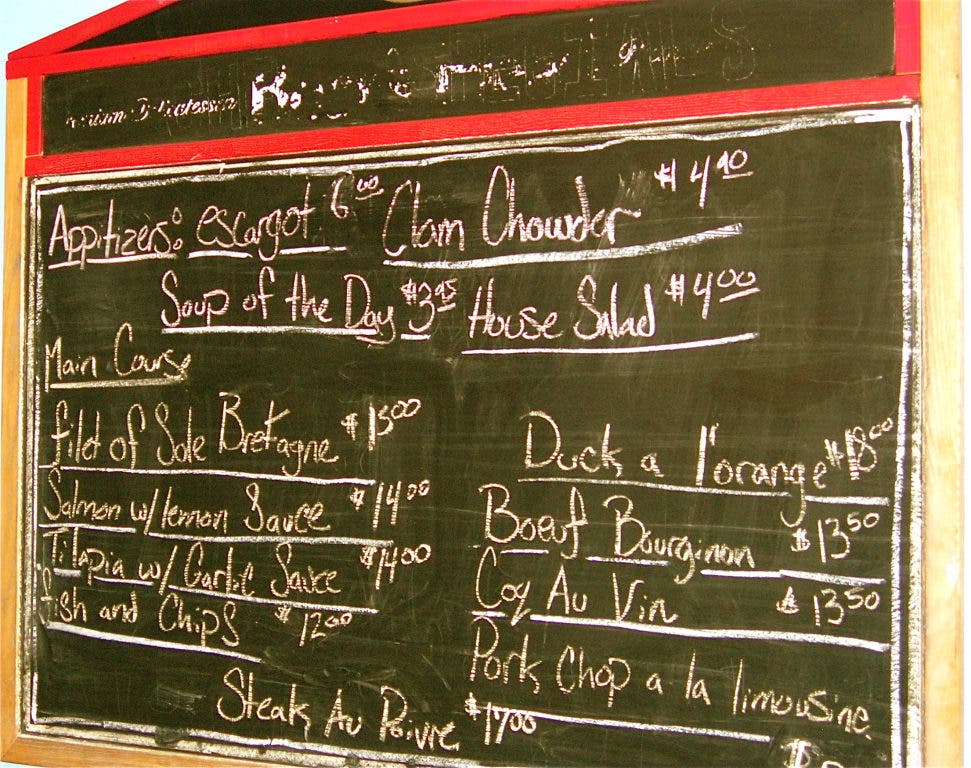 Appitizers: escargot 6.00 Clam Chowder $4.40
Soup of the Day $3.95 House Salad $4.00
Main Course
filet of Sole Bretagne $15.00
Duck a l'orange $18.00
Salmon w/lemon Sauce $14.00
Boeuf Bourginon $13.50
Tilapia w/ Garlic Sauce $14.00
Coq Au Vin $13.50
fish and Chips $12.00
Pork Chop a la limousine
Steak Au Poivre $17.00
$